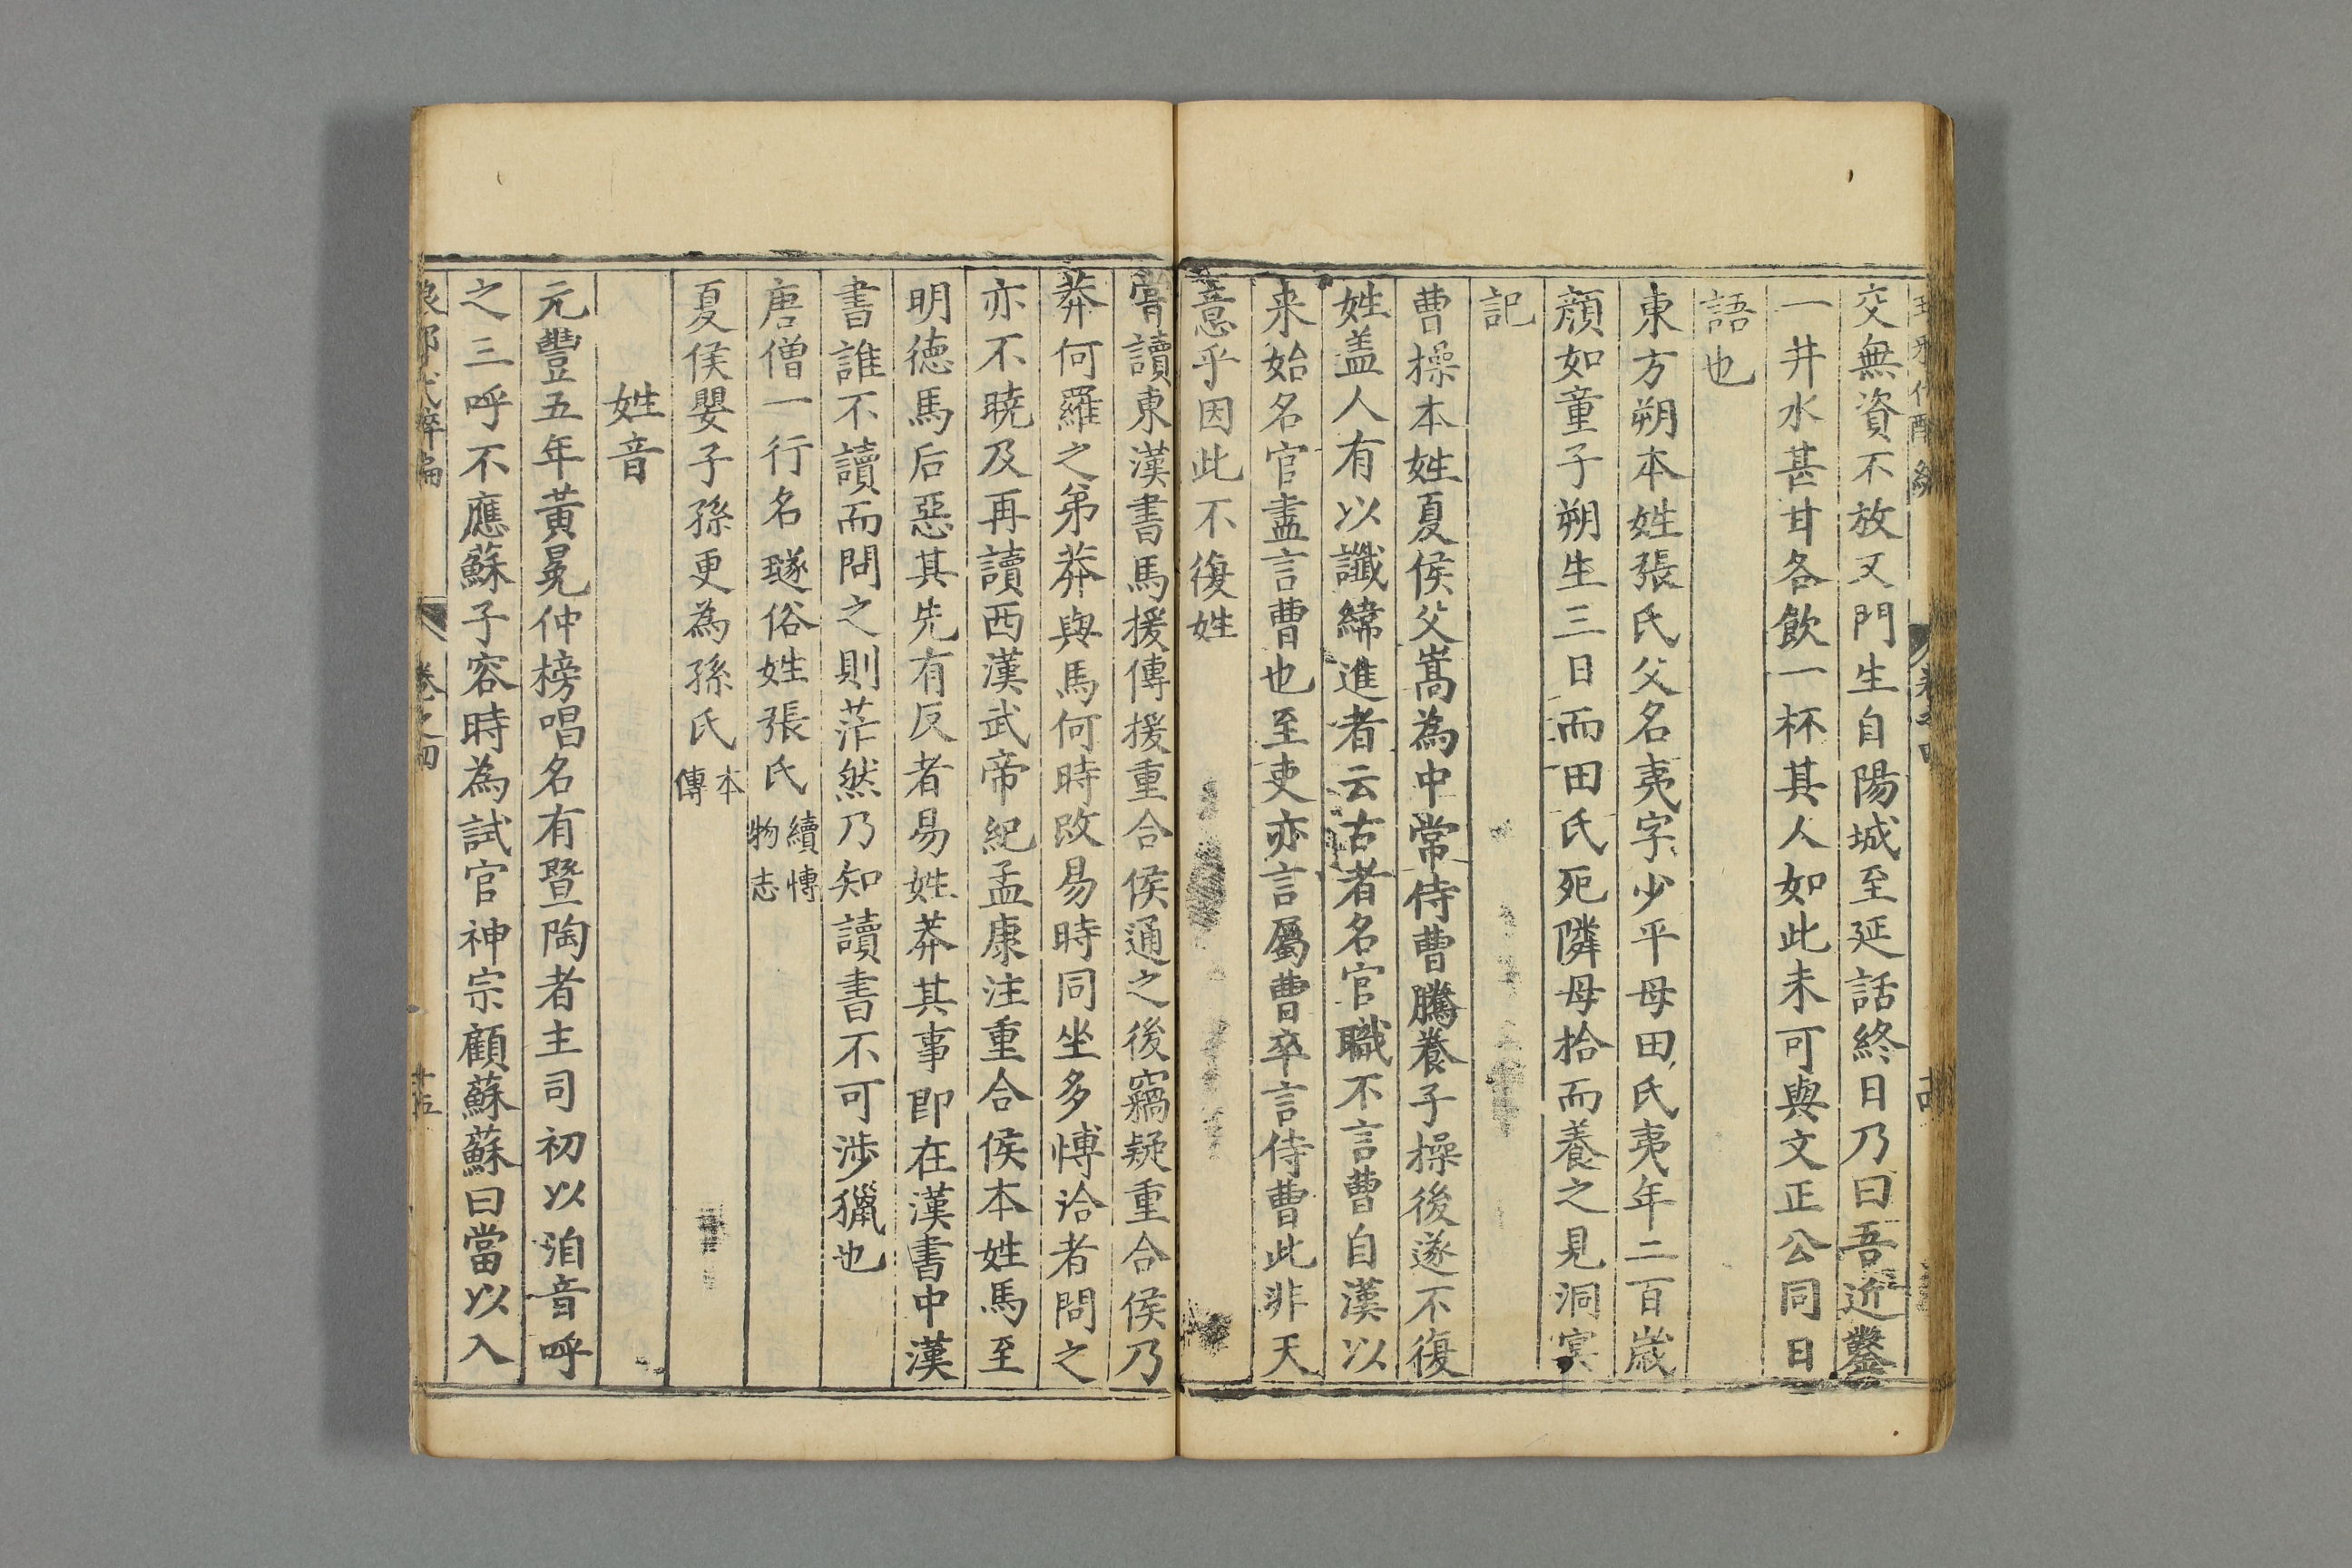 交無資不放又門生自陽城至延話終日乃曰吾近鑿
一井水甚甘各飲一杯其人如此未可與文正公同日
語也
東方朔本姓張氏父名夷字少平母田氏夷年二百歲
顏如童子朔生三日而田氏死隣母拾而養之見洞冥
記
曹操本姓夏侯父嵩為中常侍曹騰養子操後遂不復
姓盖人有以讖緯進者云古者名官職不言曹自漢以
来始名官盡言曹也至吏亦言屬曹卒言侍曹此非天
意乎因此不復姓
甞讀東漢書馬援傳援重合侯通之後竊疑重合侯乃
莽何羅之弟莽與馬何時改易時同坐多愽洽者問之
亦不曉及再讀西漢武帝紀孟康注重合侯本姓馬至
明德馬后惡其先有反者易姓莽其事即在漢書中漢
書誰不讀而問之則茫然乃知讀書不可涉獵也
唐僧一行名璲俗姓張氏續愽物志
夏侯嬰子孫更為孫氏本傳
姓音
元豐五年黃冕仲榜唱名有暨陶者主司初以洎音呼
之三呼不應蘇子容時為試官神宗顧蘇蘇曰當以入
卷之四